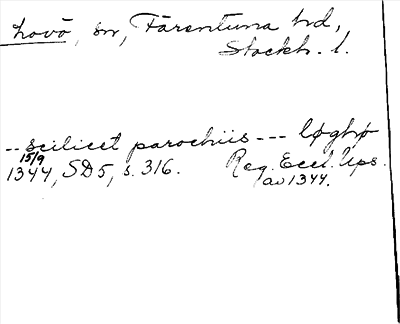 Lovö, sn, Färentuna hd,
Stockh. l.
-- scilicet parochiis --- løghø
15/9
1344, SD5, s. 316. Reg. Eccl. Ups.
av 1344.